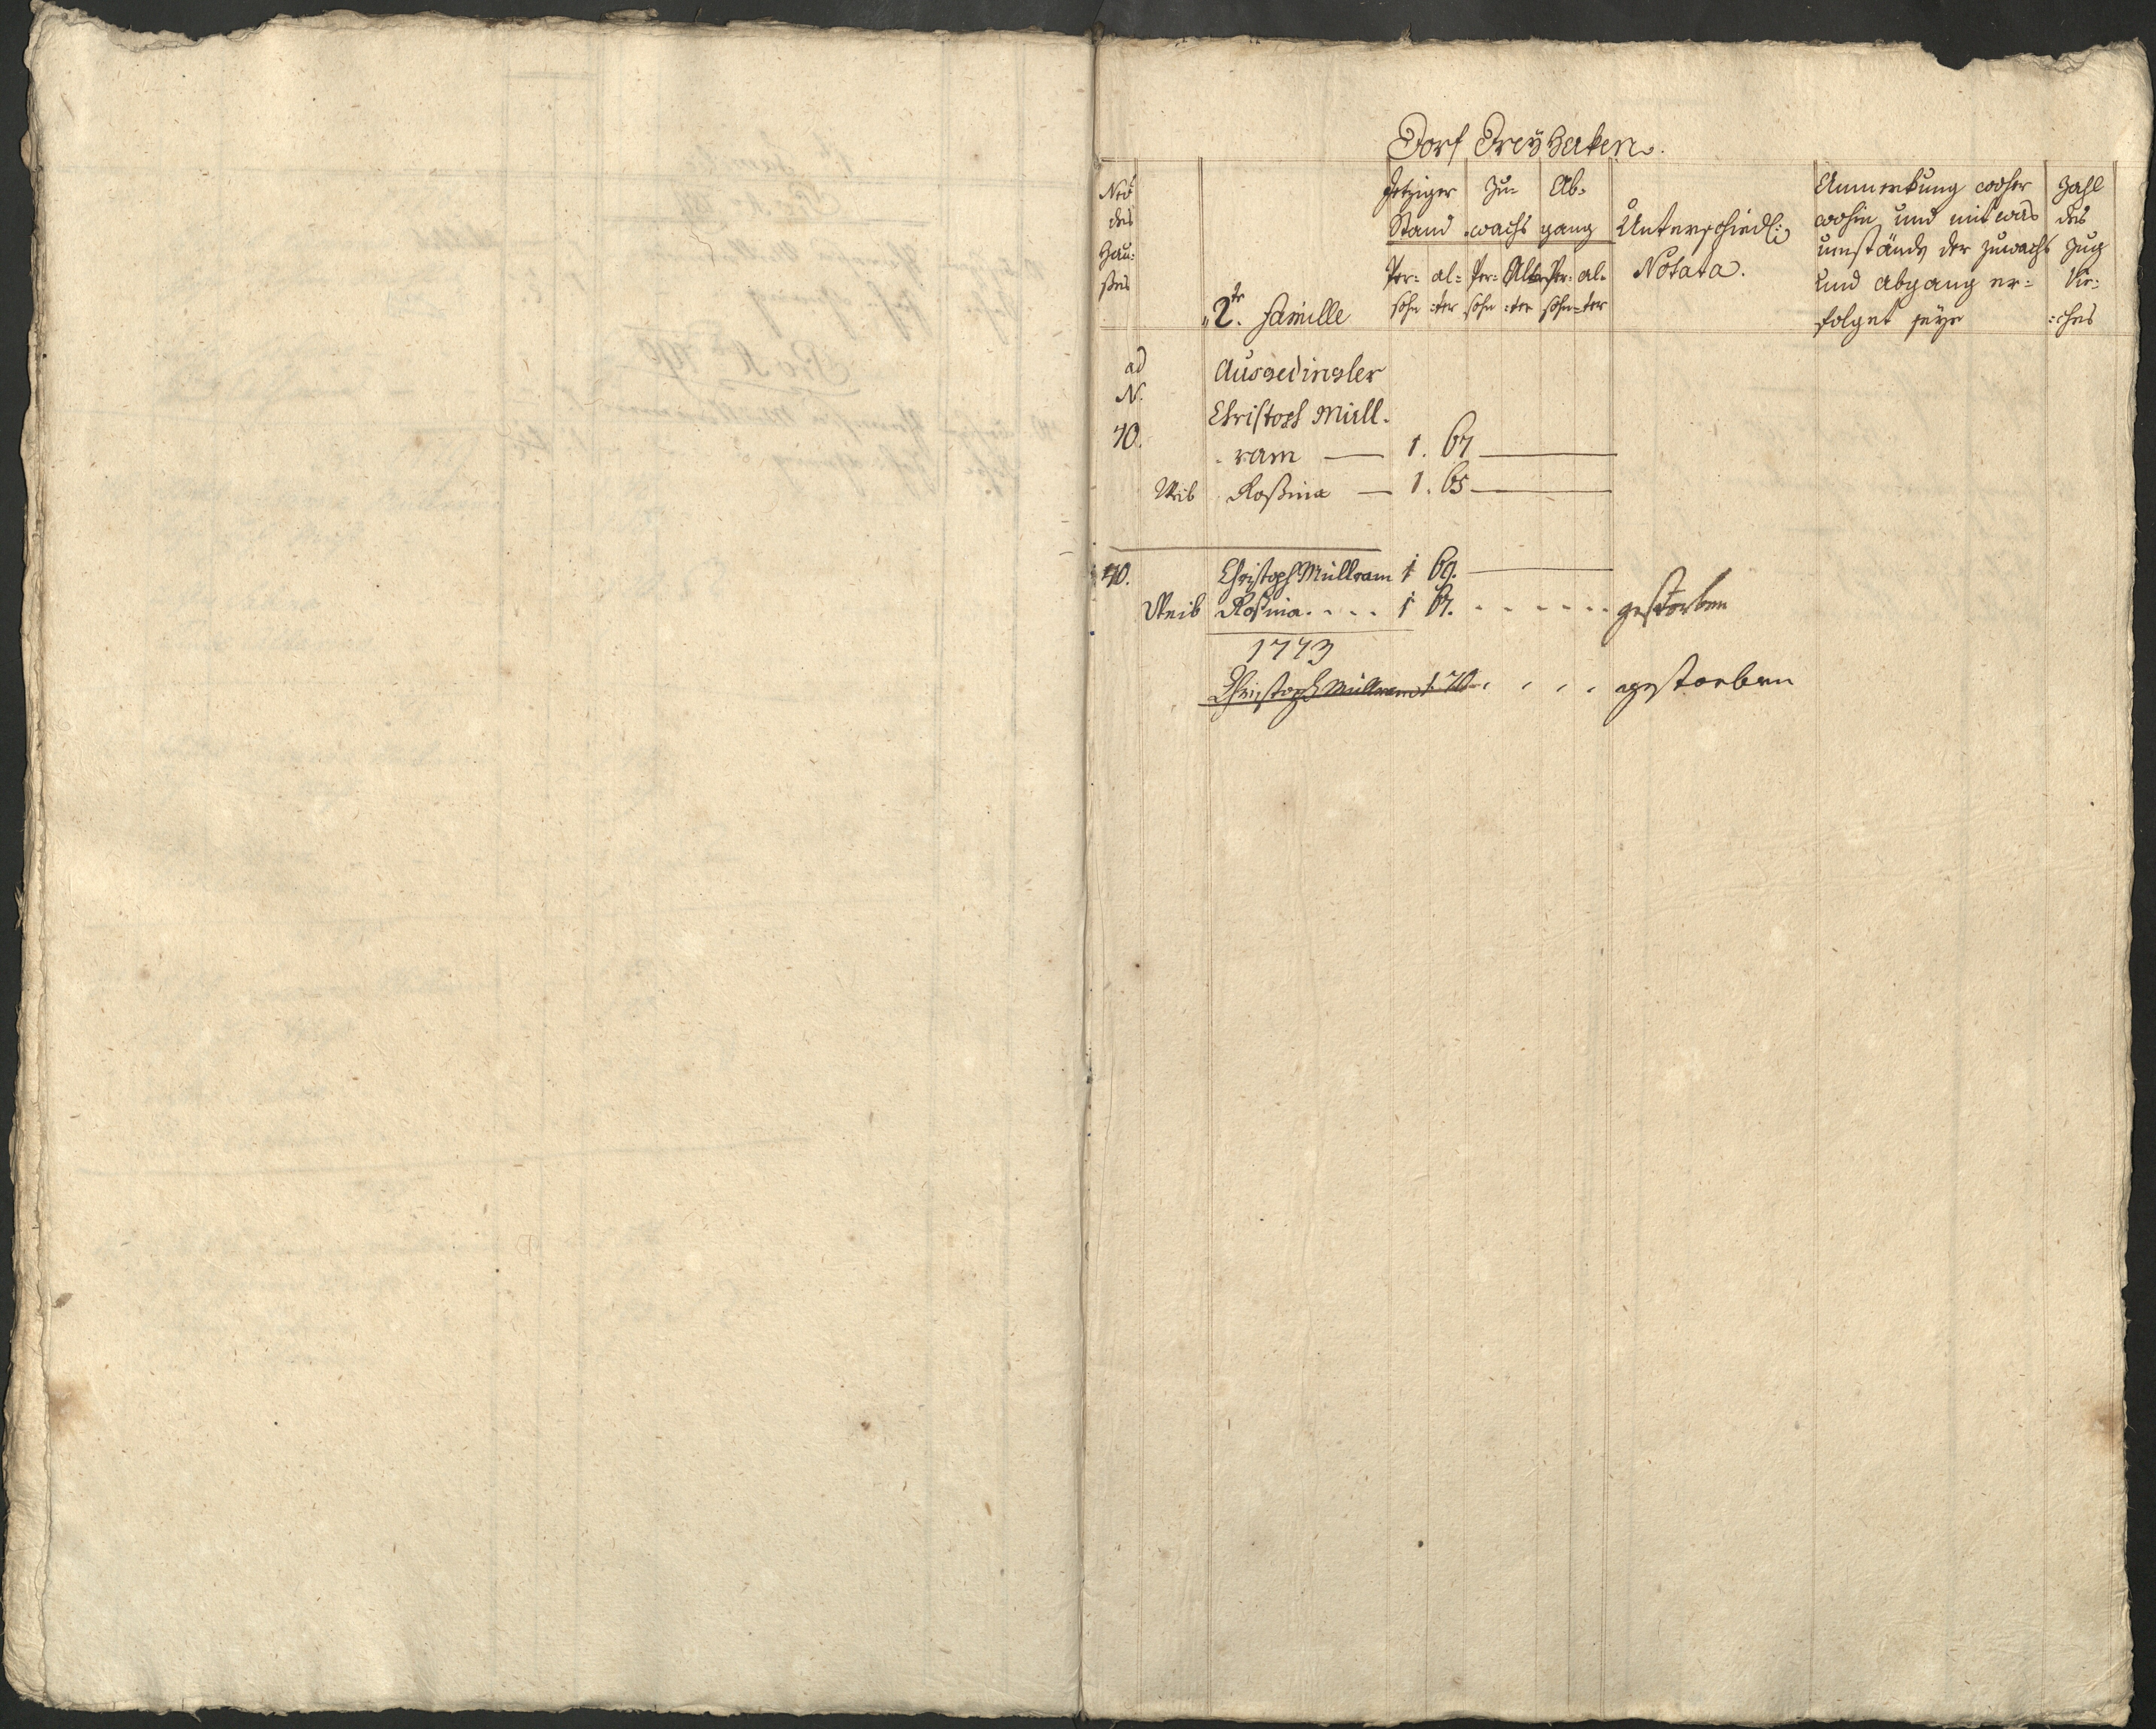 Dorf Dreyhaken.
Nro des Hau: ßes
2te Familie
Jetziger Stand
Zu= wachs
Ab= gang
Per= sohn
al= ter
Per= sohn
Al= ter
Per= sohn
al= ter
Unterschiedl: Notata.
Anmerkung woher
wohin, und mit was
umstände der Zuwachs
und abgang er=
folget seye
Zahl des Zug Vie= ches
ad N. 40.
Aussedingler
Christoph Müll=
ram — 1. 67
Weib Roßina — 1. 65
40. Christoph Müllram 1 69.
Weib Roßina . . . . 1 67. . . . . . . gestorben
1773
Christoph Müllram 1 70 . . . . gestorben